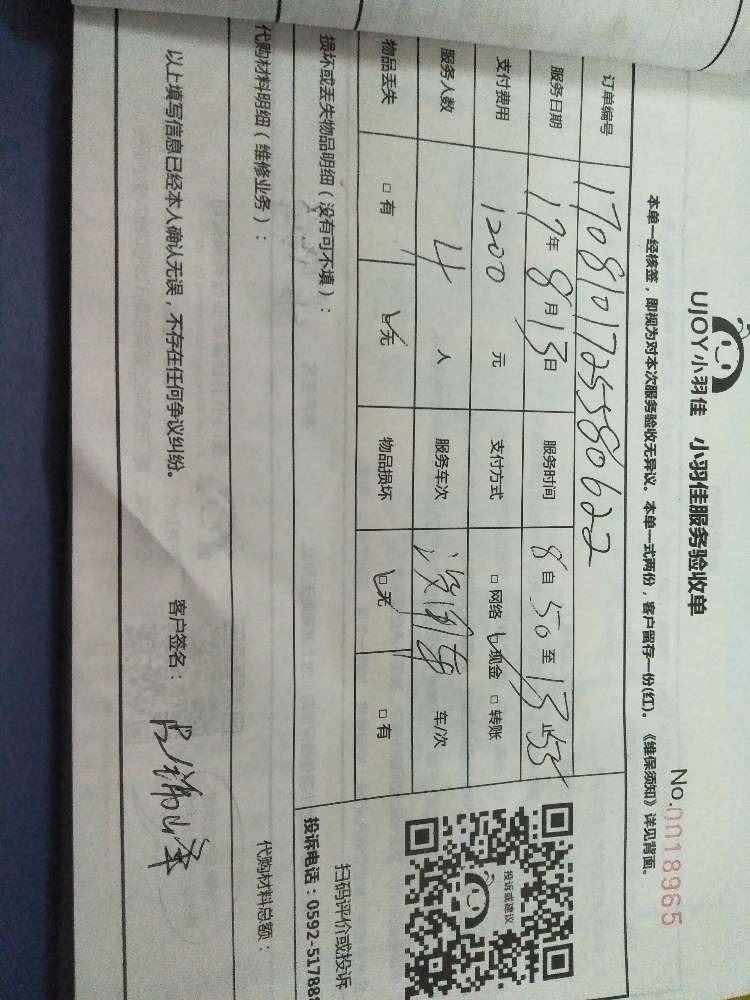 UJOY小羽佳 小羽佳服务验收单
No.0018965
本单一经核签，即视为对本次服务验收无异议。本单一式两份，客户留存一份(红)。《维保须知》详见背面。
订单编号 1708101725580622
服务日期 17年8月13日 服务时间 8自50至13止55
支付费用 1200 元 支付方式 □网络 ☑现金 □转账
服务人数 4 人 服务车次 没用车 车/次
物品丢失 □有 ☑无 物品损坏 ☑无 □有
投诉或建议
扫码评价或投诉
投诉电话：0592-51788
损坏或丢失物品明细（没有可不填）：
代购材料明细（维修业务）： 代购材料总额：
以上填写信息已经本人确认无误，不存在任何争议纠纷。 客户签名：